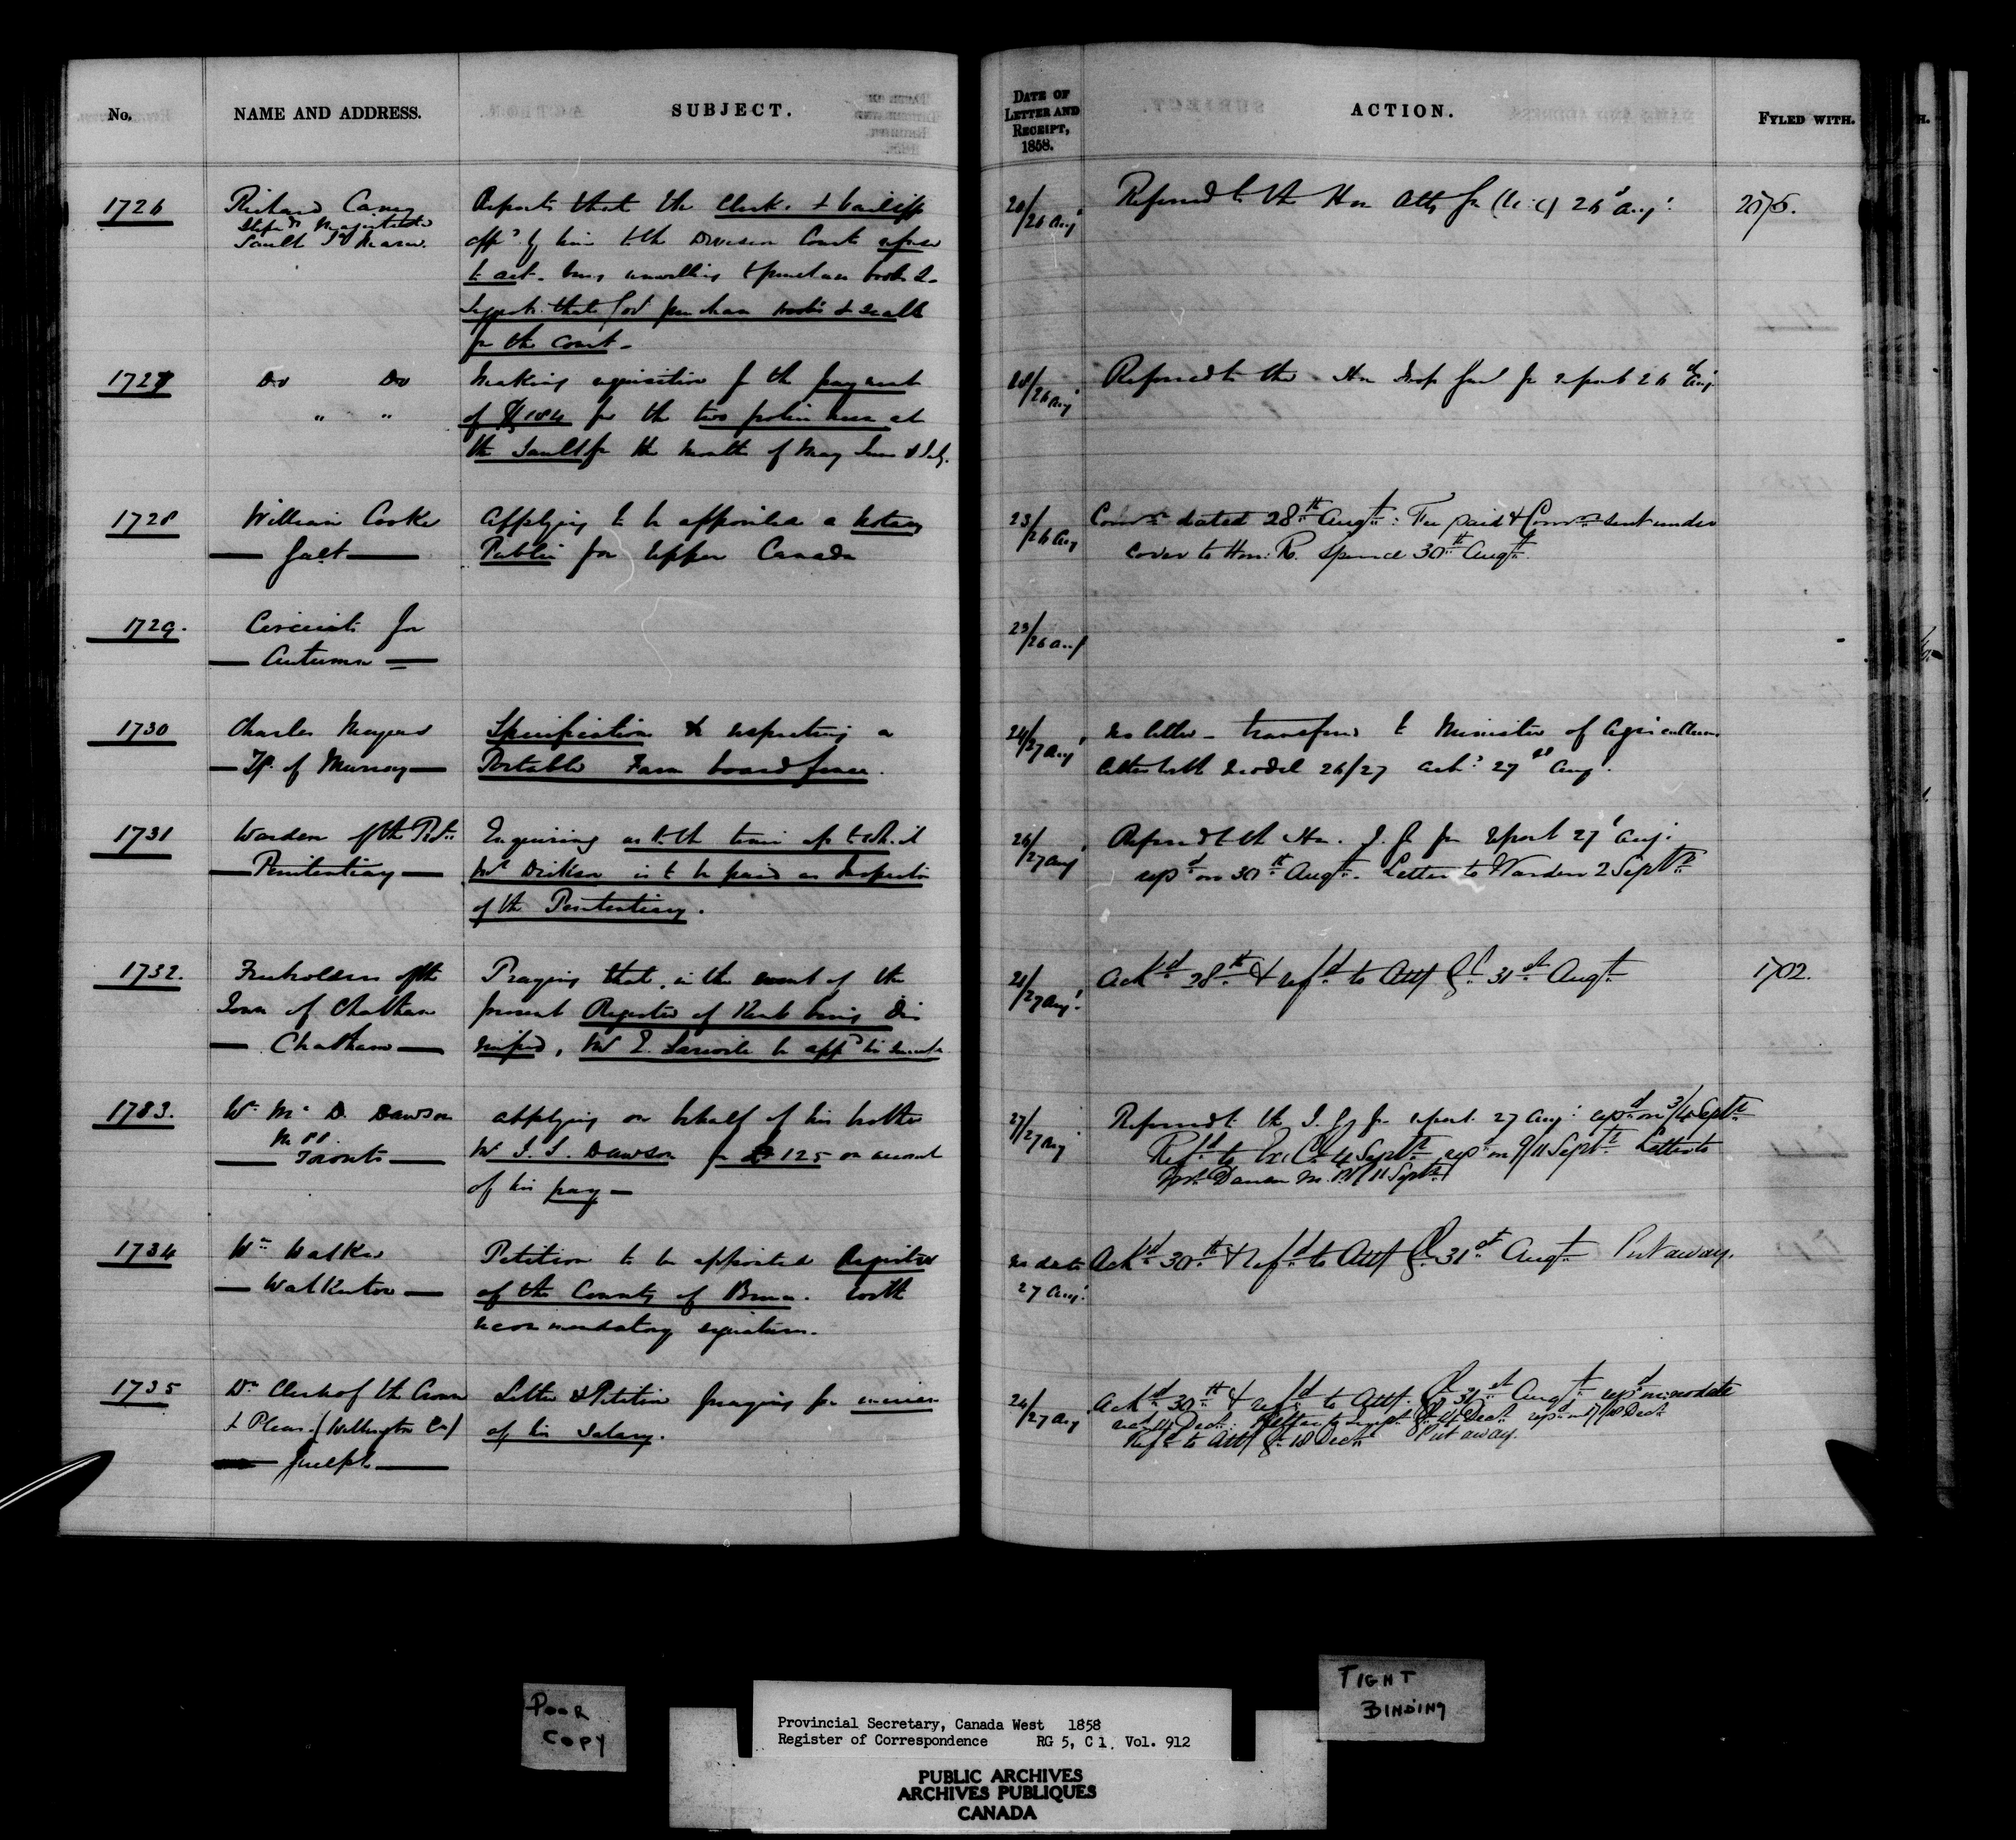 No.
NAME AND ADDRESS.
SUBJECT.
DATE OF
LETTER AND
RECEIPT,
1858.
ACTION.
FYLED WITH.
1726
Richard Carney
Stipend. Magistrate
Sault Ste Marie
Reports that the Clerk & bailiff
appd by him to the Division Court refuse
to act, being unwilling to purchase books &
Suggests that Govt purchase books & seals
for the Court -
20/26 Augt
Referred to the Hon Atty Gen (U.C.) 26t Augt
1727
Do Do
" "
Making requisition for the payment
of $184 for the two policemen at
the Sault for the Months of May June & July.
20/26 Augt
Referred to the Hon Insp Genl for report 26th Augt
1728
William Cooke
Galt
Applying to be appointed a Notary
Public for Upper Canada
23/26 Aug
Comn dated 28th Augt: Fee paid & Comn sent under
cover to Hon: R. Spence 30th Augt
1729.
Circuits for
Autumn
23/26 Aug
1730
Charles Meyers
Tp. of Murray
Specification & respecting a
Portable Farm board fence.
24/27 Augt
No letter - transferred to Minister of Agriculture
26/27 ackd 27th Augt.
1731
Warden of the Provl
Penitentiary
Enquiring as to the time up to which
Mr Dickson is to be paid as Inspector
of the Penitentiary.
26/27 Augt
Referred to the Hon. I. G. for report 27t Augt.
repd on 30th Augt. Letter to Warden 2 Septr
1732.
Freeholders of the
Town of Chatham
Chatham
Praying that, in the event of the
present Register of Kent being dis
missed, Mr E. be appd his
27 Augt.
Ackd 28th & refd to Atty Gl 31st Augt
1702.
1733.
Wm McD. Dawson
M.P.P.
Toronto
Applying on behalf of his brother
Mr S. J. Dawson for £125 on account
of his pay -
27/27 Aug
Referred to the I. G. for report 27 Augt repd on 3/4 Septr
Refd to Ex: Cl. 4 Septr repd on 9/11 Septr Letter to
Dawson M.P.P. 11 Septr
1734
Wm Walker
Walkerton
Petition to be appointed Register
of the County of Bruce. With
recommendatory signatures.
No date
27 Augt.
Ackd 30th & refd to Atty Gl 31st Augt Put away.
1735
Dy Clerk of the Crown
& Pleas. (Wellington Co)
Guelph
Letter & Petition praying for increase
of his Salary.
24/27 Aug
Ackd 30th & refd to Atty. Gl 31st Augt repd on no date
recd 14 Decr: Refd to Inspr Gl 14 Decr repd on 17/18 Decr
Refd to Atty Gl 18 Decr Put away.
POOR
COPY
TIGHT
BINDING
Provincial Secretary, Canada West 1858
Register of Correspondence RG 5, C 1. Vol. 912
PUBLIC ARCHIVES
ARCHIVES PUBLIQUES
CANADA